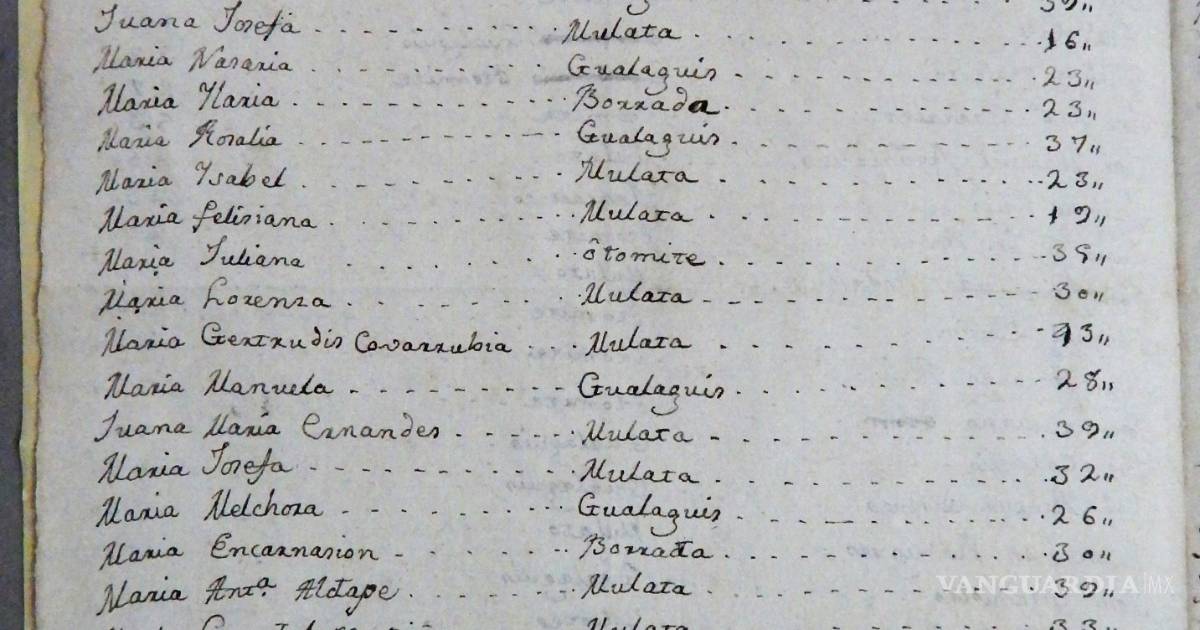 39„
Juana Josefa . . . . . . . . . . Mulata . . . . . . . . . . 16„
Maria Nasaria . . . . . . . . . . Gualaguis . . . . . . . . . . 23„
Maria Ylaria . . . . . . . . . . Borrada . . . . . . . . . . 23„
Maria Rosalia . . . . . . . . . . Gualaguis . . . . . . . . . . 37„
Maria Ysabel . . . . . . . . . . Mulata . . . . . . . . . . 23„
Maria felisiana . . . . . . . . . . Mulata . . . . . . . . . . 19„
Maria Juliana . . . . . . . . . . ôtomite . . . . . . . . . .
Maria Lorenza . . . . . . . . . . Mulata . . . . . . . . . . 30„
Maria Gertrudis Covarrubia . . . Mulata . . . . . . . . . .
Maria Manuela . . . . . . . . . . Gualaguis . . . . . . . . . . 28„
Juana María Ernandes . . . . . Mulata . . . . . . . . . . 39„
Maria Josefa . . . . . . . . . . Mulata . . . . . . . . . . 32„
Maria Melchora . . . . . . . . . . Gualaguis . . . . . . . . . . 26„
Maria Encarnasion . . . . . . . . Borrada . . . . . . . . . . 30„
Maria Antª Aldape . . . . . . . . Mulata . . . . . . . . . . 39„
Mulata 33„
VANGUARDIA|MX